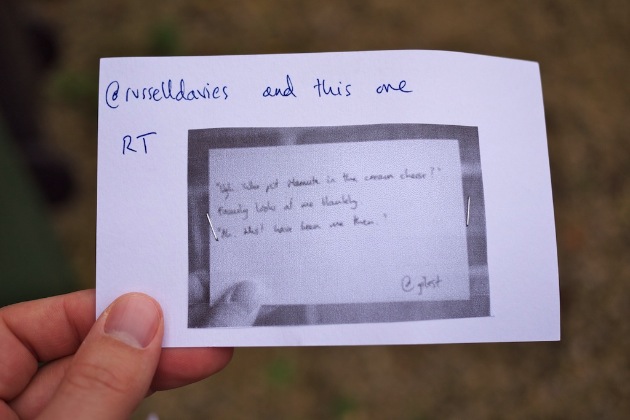 @russelldavies and this one
RT
"Ugh. Who put Marmite in the cream cheese?"
Family looks at me blankly.
"Oh. Must have been me then."